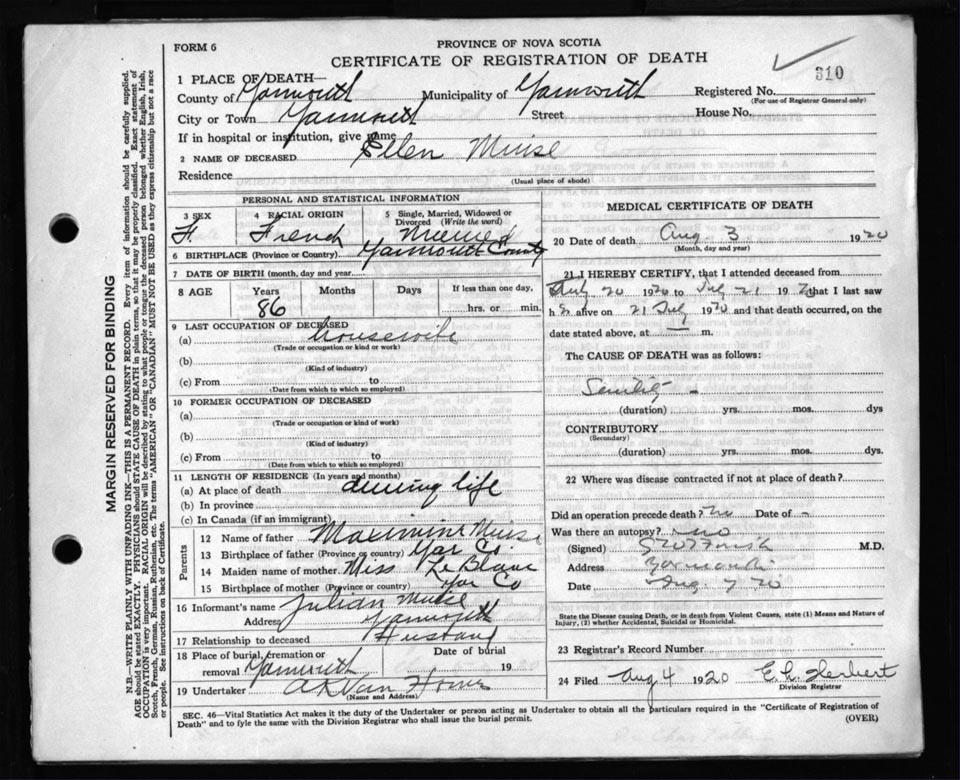 FORM 6
PROVINCE OF NOVA SCOTIA
CERTIFICATE OF REGISTRATION OF DEATH
310
1 PLACE OF DEATH—
County of Yarmouth Municipality of Yarmouth Registered No.
(For use of Registrar General only)
City or Town Yarmouth Street House No.
If in hospital or institution, give name
2 NAME OF DECEASED Ellen Muise
Residence
(Usual place of abode)
PERSONAL AND STATISTICAL INFORMATION
3 SEX 4 RACIAL ORIGIN 5 Single, Married, Widowed or Divorced (Write the word)
F. French Married
6 BIRTHPLACE (Province or Country) Yarmouth County
7 DATE OF BIRTH (month, day and year)
8 AGE Years Months Days If less than one day,
86 hrs. or min.
9 LAST OCCUPATION OF DECEASED
(a) housewife
(Trade or occupation or kind or work)
(b)
(Kind of industry)
(c) From to
(Date from which to which so employed)
10 FORMER OCCUPATION OF DECEASED
(a)
(Trade or occupation or kind of work)
(b)
(Kind of industry)
(c) From to
(Date from which to which so employed)
11 LENGTH OF RESIDENCE (In years and months)
(a) At place of death during life
(b) In province
(c) In Canada (if an immigrant)
Parents
12 Name of father Maximine Muise
13 Birthplace of father (Province or country) Yar Co.
14 Maiden name of mother Miss LeBlanc
15 Birthplace of mother (Province or country) Yar Co
16 Informant's name Julian Muise
Address Yarmouth
17 Relationship to deceased Husband
18 Place of burial, cremation or removal Yarmouth Date of burial 1920
19 Undertaker Van Horne
(Name and Address)
MEDICAL CERTIFICATE OF DEATH
20 Date of death Aug. 3 1920
(Month, day and year)
21 I HEREBY CERTIFY, that I attended deceased from
July 20 1920 to July 21 1920 that I last saw
h alive on 21 July 1920 and that death occurred, on
date stated above, at — m.
The CAUSE OF DEATH was as follows:
Senility —
(duration) yrs. mos. dys
CONTRIBUTORY
(Secondary)
(duration) yrs. mos. dys.
22 Where was disease contracted if not at place of death?
Did an operation precede death? no Date of —
Was there an autopsy? no
(Signed) M.D.
Address Yarmouth
Date Aug. 7 20
State the Disease causing Death, or in death from Violent Causes, state (1) Means and Nature of
Injury, (2) whether Accidental, Suicidal or Homicidal.
23 Registrar's Record Number
24 Filed Aug 4 1920 E. L. Herbert
Division Registrar
SEC. 46—Vital Statistics Act makes it the duty of the Undertaker or person acting as Undertaker to obtain all the particulars required in the "Certificate of Registration of
Death" and to fyle the same with the Division Registrar who shall issue the burial permit. (OVER)
MARGIN RESERVED FOR BINDING
N.B.—WRITE PLAINLY WITH UNFADING INK—THIS IS A PERMANENT RECORD. Every item of information should be carefully supplied.
AGE should be stated EXACTLY. PHYSICIANS should STATE CAUSE OF DEATH in plain terms, so that it may be properly classified. Exact statement of
OCCUPATION is very important. RACIAL ORIGIN will be described by stating to what people or tongue the deceased person belonged whether English, Irish,
Scotch, French, German, Russian, Ruthenian, etc. The terms "AMERICAN" OR "CANADIAN" MUST NOT BE USED as they express citizenship but not a race
or people. See instructions on back of Certificate.